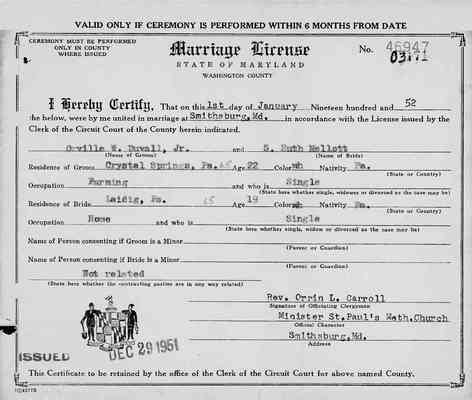 VALID ONLY IF CEREMONY IS PERFORMED WITHIN 6 MONTHS FROM DATE
CEREMONY MUST BE PERFORMED
ONLY IN COUNTY
WHERE ISSUED
Marriage License
STATE OF MARYLAND
WASHINGTON COUNTY
No. 46947
I Hereby Certify, That on this 1st day of January Nineteen hundred and 52
the below, were by me united in marriage at Smithsburg, Md. in accordance with the License issued by the
Clerk of the Circuit Court of the County herein indicated.
Orville W. Duvall, Jr. and S. Ruth Mellott
(Name of Groom) (Name of Bride)
Residence of Groom Crystal Springs, Pa. Age 22 Color wh Nativity Pa.
(State or Country)
Occupation Farming and who is Single
(State here whether single, widower or divorced as the case may be)
Residence of Bride Laidig, Pa. Age 19 Color wh Nativity Pa.
(State or Country)
Occupation Home and who is Single
(State here whether single, widow or divorced as the case may be)
Name of Person consenting if Groom is a Minor
(Parent or Guardian)
Name of Person consenting if Bride is a Minor
(Parent or Guardian)
Not related
(State here whether the contracting parties are in any way related)
Rev. Orrin L. Carroll
Signature of Officiating Clergyman
Minister St.Paul's Meth.Church
Official Character
Smithsburg,Md.
Address
ISSUED
DEC 29 1951
This Certificate to be retained by the office of the Clerk of the Circuit Court for above named County.